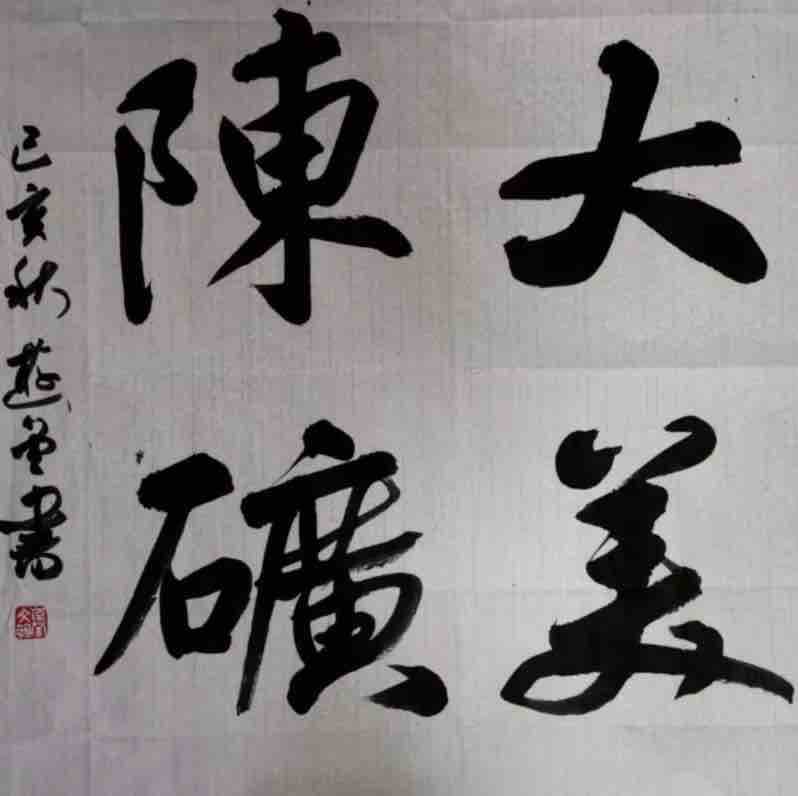 大美
陳礦
己亥秋
書